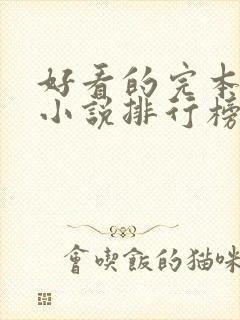 好看的完本
小說排行榜
會喫飯的貓咪